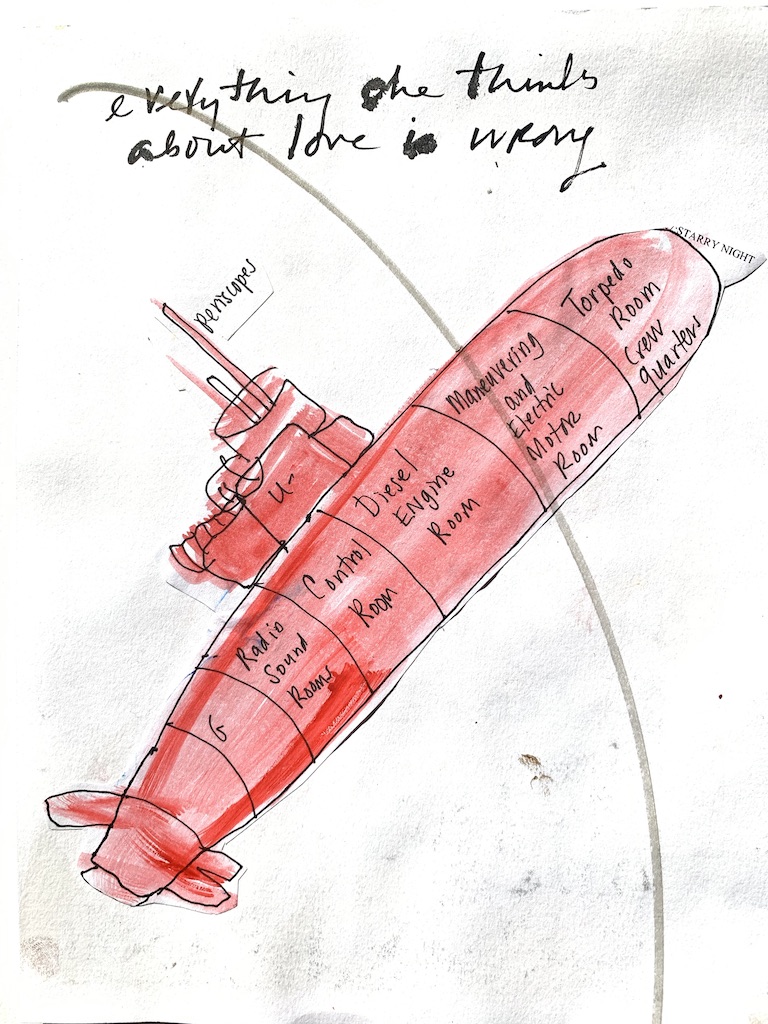 everything she thinks
about love is wrong
STARRY NIGHT
periscopes
Torpedo
Room
Crew
quarters
Maneuvering
and
Electric
Motor
Room
U-
Diesel
Engine
Room
Control
Room
Radio
Sound
Rooms
G